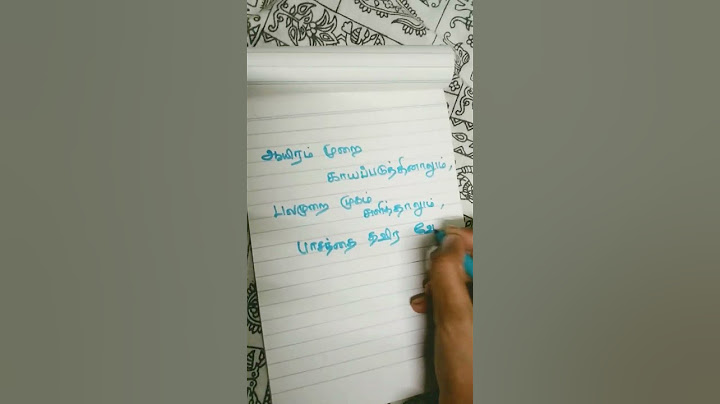 ஆயிரம் முறை
காயப்படுத்தினாலும்,
பலமுறை முகம்
சுளித்தாலும்,
பாசத்தை தவிர வே